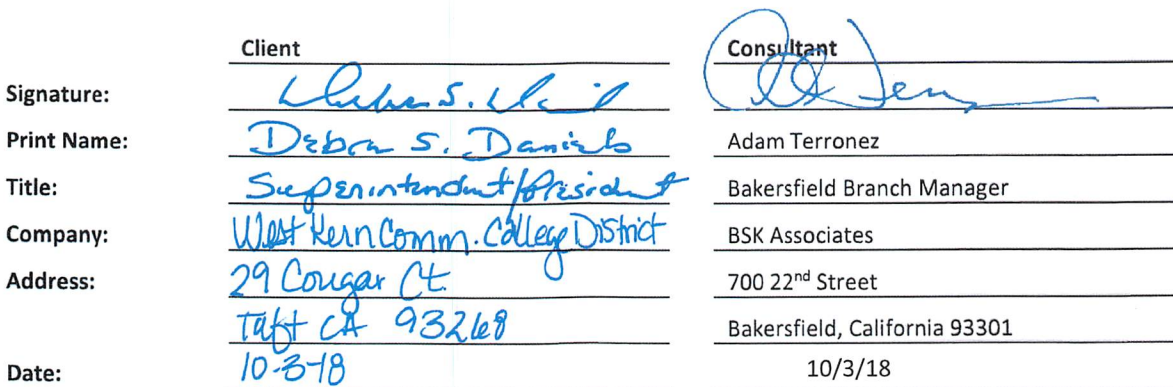 Client Consultant
Signature:
Print Name: Debra S. Daniels Adam Terronez
Title: Superintendent/President Bakersfield Branch Manager
Company: West Kern Comm. College District BSK Associates
Address: 29 Cougar Ct. 700 22nd Street
Taft CA 93268 Bakersfield, California 93301
Date: 10-3-18 10/3/18